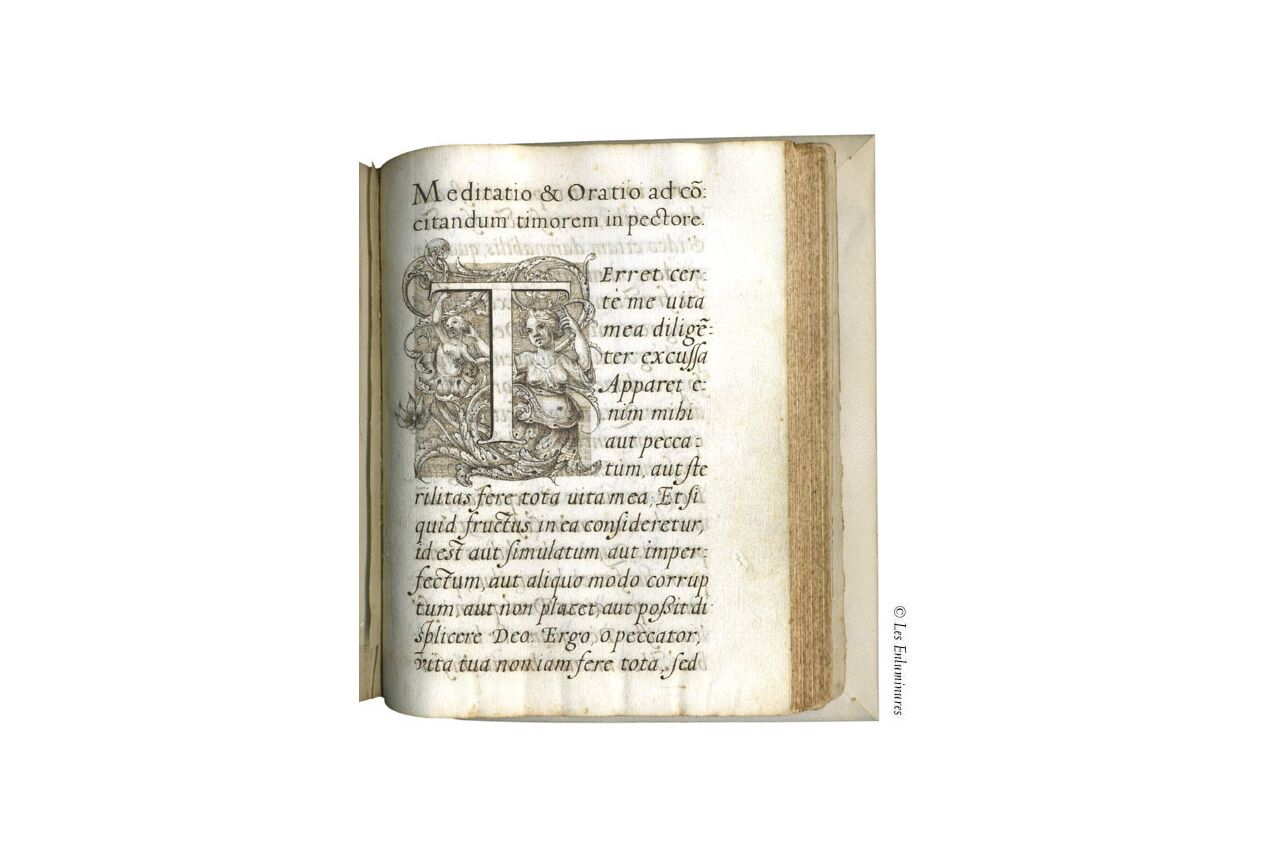 Meditatio & Oratio ad cõ:
citandum timorem in pectore.
TErret cer
te me uita
mea diligẽ:
ter excussa
Apparet e:
nim mihi
aut pecca:
tum, aut ste
rilitas fere tota uita mea; Et si
quid fructus in ea consideretur,
id est aut simulatum aut imper:
fectum, aut aliquo modo corrup
tum, aut non placet, aut poßit di
splicere Deo. Ergo, o peccator,
vita tua non iam fere tota, sed
© Les Enluminures